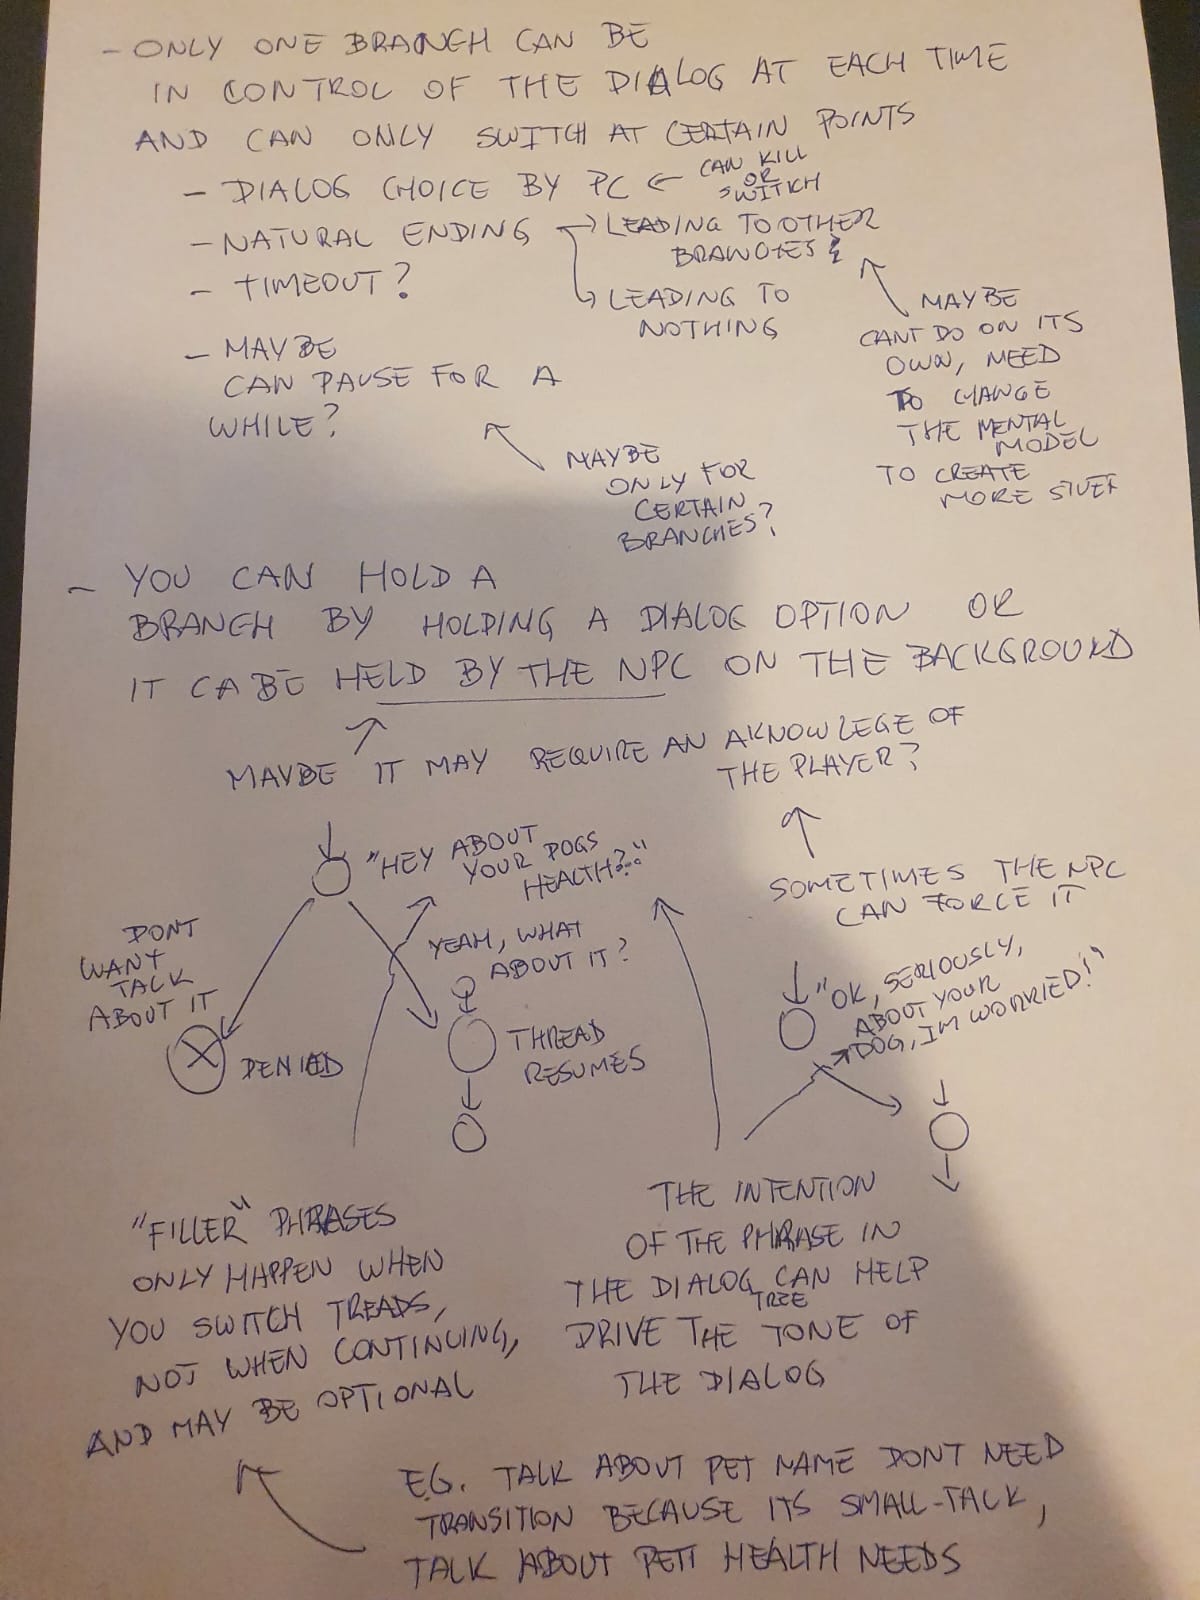 - ONLY ONE BRANCH CAN BE
IN CONTROL OF THE DIALOG AT EACH TIME
AND CAN ONLY SWITCH AT CERTAIN POINTS
- DIALOG CHOICE BY PC ←
CAN KILL
OR
SWITCH
- NATURAL ENDING → LEADING TO OTHER
BRANCHES
- TIMEOUT?
LEADING TO
NOTHING
MAYBE
CANT DO ON ITS
OWN, NEED
TO CHANGE
THE MENTAL
MODEL
TO CREATE
MORE STUFF
- MAYBE
CAN PAUSE FOR A
WHILE?
MAYBE
ONLY FOR
CERTAIN
BRANCHES?
- YOU CAN HOLD A
BRANCH BY HOLDING A DIALOG OPTION OR
IT CA BE HELD BY THE NPC ON THE BACKGROUND
MAYBE IT MAY REQUIRE AN AKNOWLEGE OF
THE PLAYER?
SOMETIMES THE NPC
CAN FORCE IT
"HEY ABOUT
YOUR DOGS
HEALTH?.."
DONT
WANT
TALK
ABOUT IT
DENIED
YEAH, WHAT
ABOUT IT?
THREAD
RESUMES
"OK, SERIOUSLY,
ABOUT YOUR
DOG, IM WORRIED!"
"FILLER" PHRASES
ONLY HAPPEN WHEN
YOU SWITCH TREADS,
NOT WHEN CONTINUING,
AND MAY BE OPTIONAL
THE INTENTION
OF THE PHRASE IN
THE DIALOG TREE CAN HELP
DRIVE THE TONE OF
THE DIALOG
E.G. TALK ABOUT PET NAME DONT NEED
TRANSITION BECAUSE ITS SMALL-TALK,
TALK ABOUT PETT HEALTH NEEDS